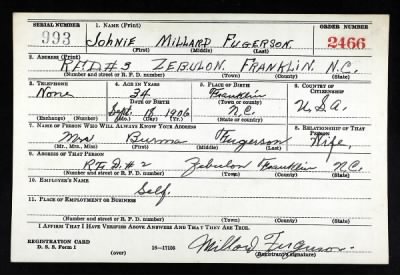 SERIAL NUMBER 1. NAME (Print) ORDER NUMBER
993 Johnie Millard Fugerson 2466
(First) (Middle) (Last)
2. ADDRESS (Print)
R.F.D. #3 Zebulon, Franklin, N.C.
(Number and street or R. F. D. number) (Town) (County) (State)
3. TELEPHONE 4. AGE IN YEARS 5. PLACE OF BIRTH 6. COUNTRY OF CITIZENSHIP
None 34 Franklin
DATE OF BIRTH (Town or county)
Sept. 1906 N.C. U.S.A.
(Exchange) (Number) (Mo.) (Day) (Yr.) (State or country)
7. NAME OF PERSON WHO WILL ALWAYS KNOW YOUR ADDRESS 8. RELATIONSHIP OF THAT PERSON
Mrs Burma Fugerson Wife
(Mr., Mrs., Miss) (First) (Middle) (Last)
9. ADDRESS OF THAT PERSON
R.F.D. #2 Zebulon Franklin N.C.
(Number and street or R. F. D. number) (Town) (County) (State)
10. EMPLOYER'S NAME
Self.
11. PLACE OF EMPLOYMENT OR BUSINESS
(Number and street or R. F. D. number) (Town) (County) (State)
I AFFIRM THAT I HAVE VERIFIED ABOVE ANSWERS AND THAT THEY ARE TRUE.
REGISTRATION CARD
D. S. S. Form 1 (over) 16—17105 Millard Ferguson.
(Registrant's signature)